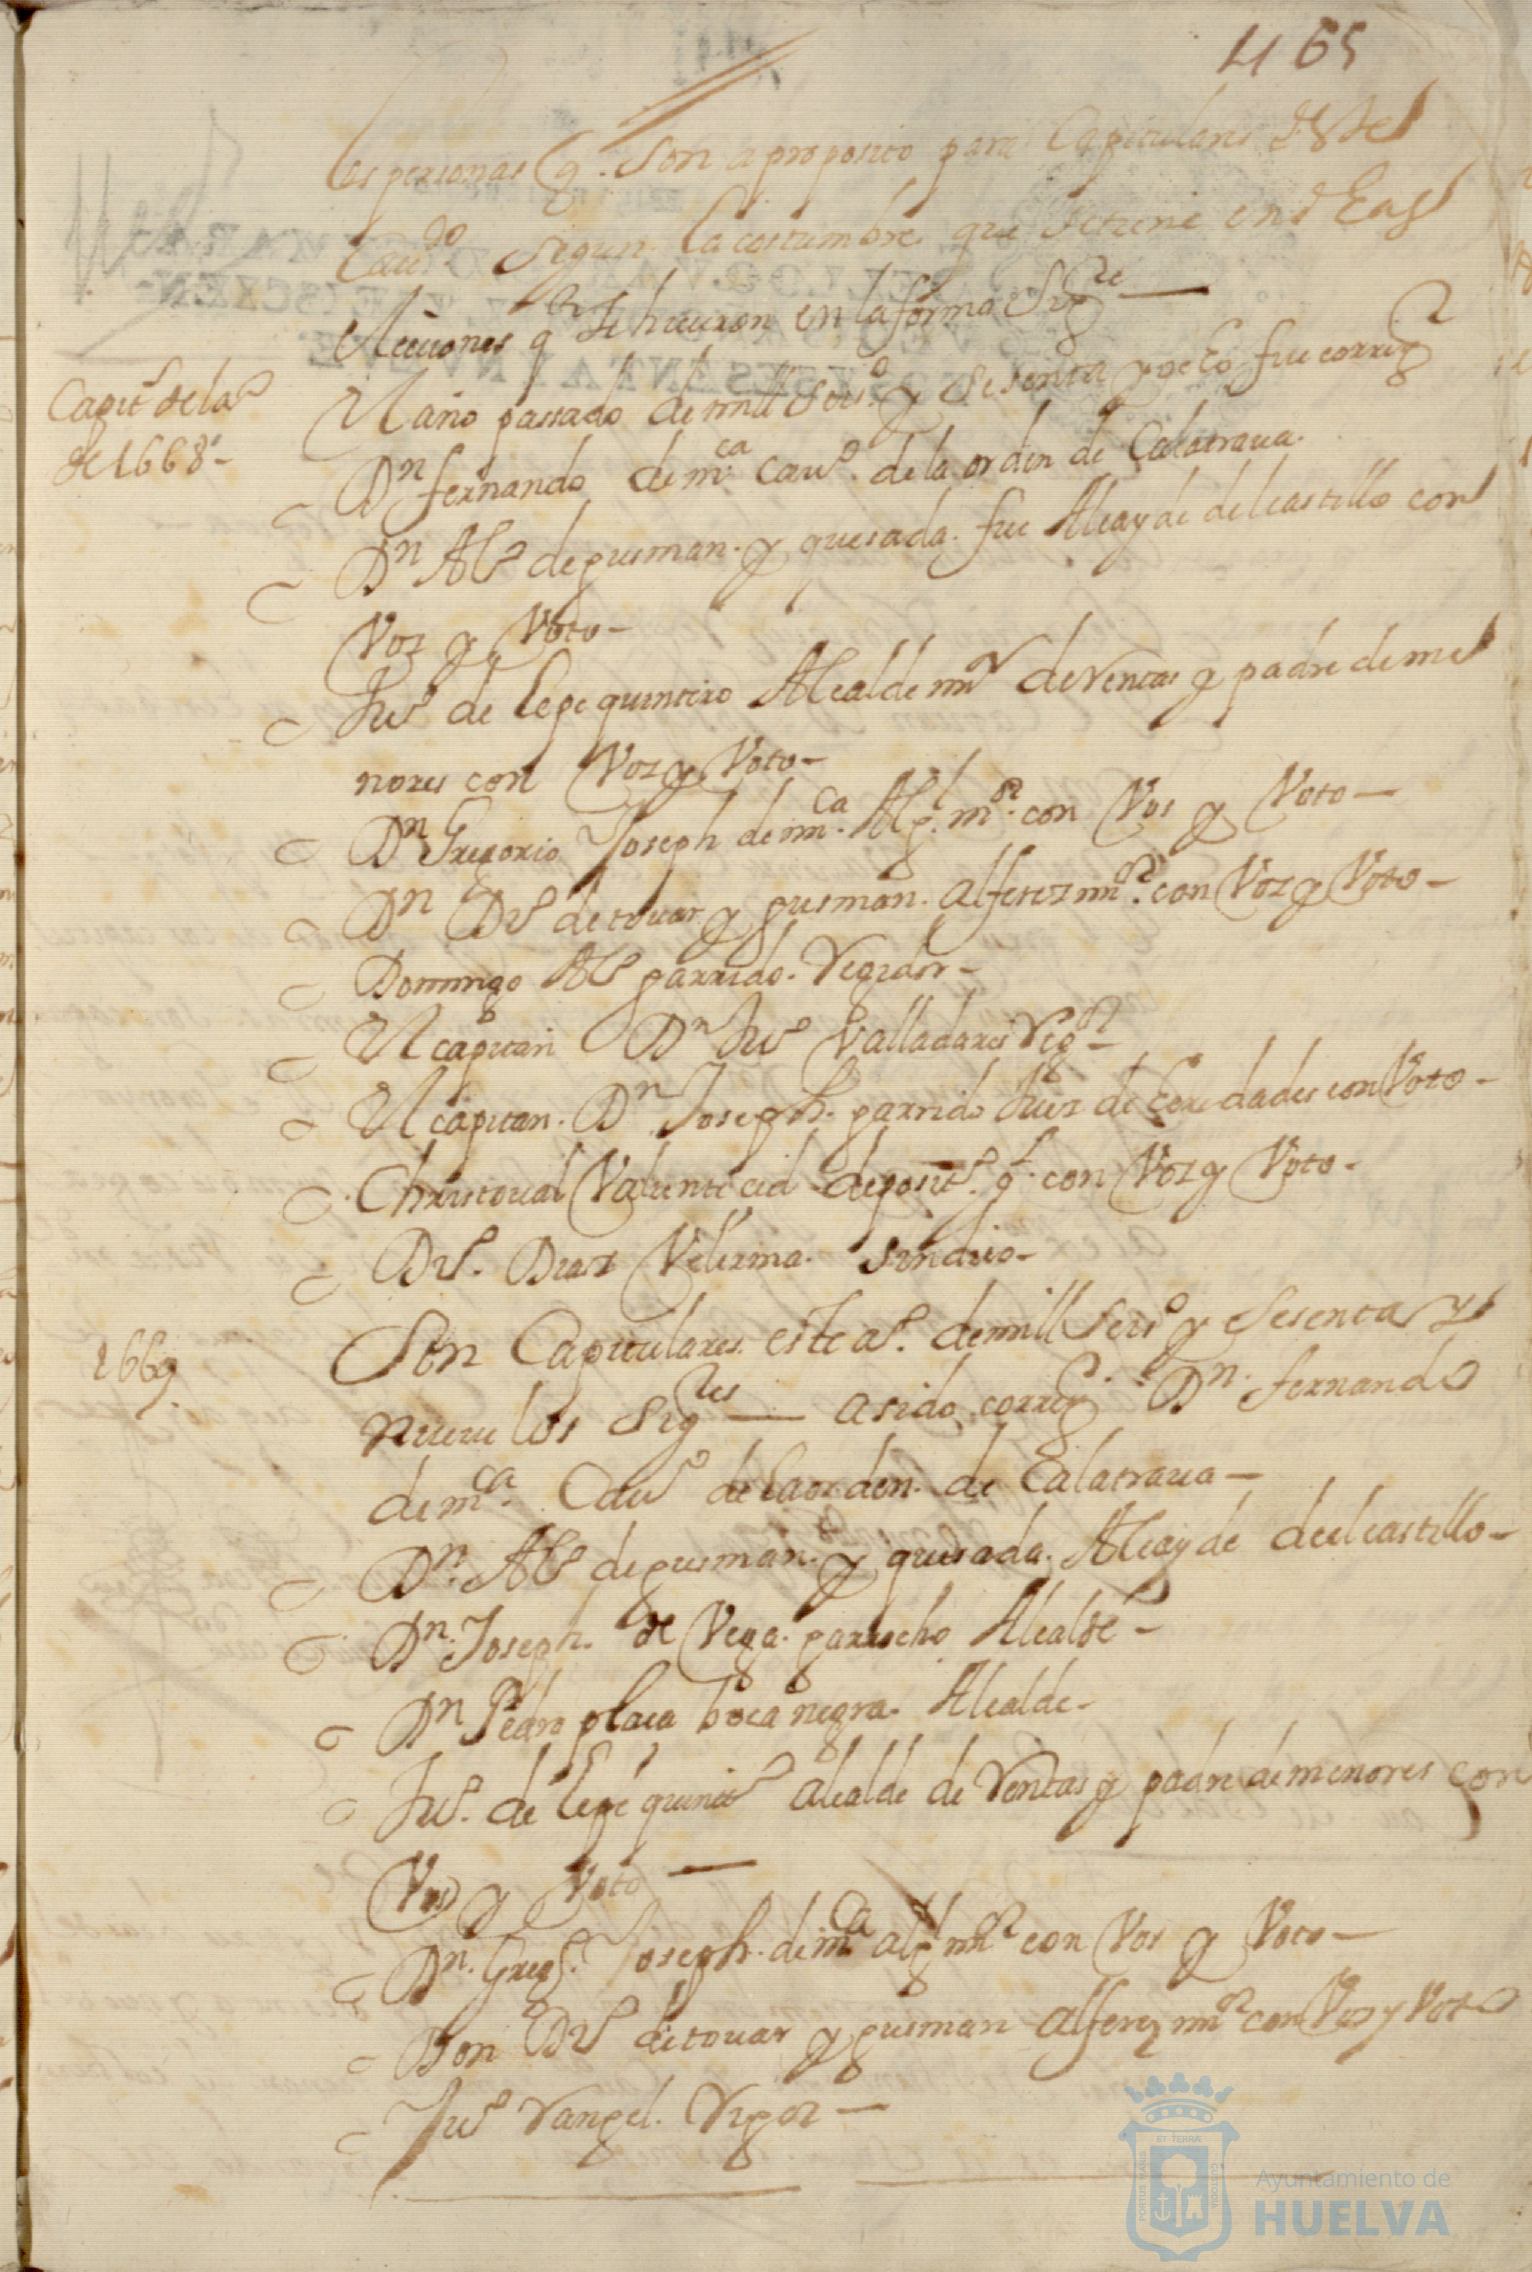 465
las personas q. son a proposito para Capitulares deste
Cavdo segun la costumbre que se tiene en d
elecciones q se hicieron en la forma sigte
Capit.s de el a.o
de 1668
El año passado de mill seis.o y sesenta y ocho fue correg.r
Dn fernando de m.ca Cauo. de la orden de Calatraua.
Dn Alo de gusman. y quesada. fue Alcayde del castillo con
Voz y Voto
Juo de lepe quintero Alcalde mr de Ventas y padre de me
nores con Voz y Voto
Dn Gregorio Joseph de m.ca Algl. mor. con Vos y Voto
Dn Do de touar y gusman. alferez mor. con Voz y Voto
Domingo Alo garrido. Regidor
El capitan Dn Juo Valladares Regor
El capitan. Dn Joseph. garrido Juez de eredades con Voto
Christoual Valiente cid deposito. gl. con Voz y Voto
Do. Diaz Velerma. sindico
1669
Son Capitulares este ao. de mill seiso y sesenta y
nueue los sigtes a sido correg.r Dn. fernando
de mca. Cauo de la orden. de Calatraua
Dn. Alo de gusman. y quesada. Alcayde del castillo
Dn. Joseph. de Vega. garrocho Alcalde
Dn Pedro plaça boca negra. Alcalde
Juo. de lepe quinto alcalde de Ventas y padre de menores con
Vos y Voto
Dn. Grego. Joseph. de mca algl mor con Vos y Voto
Don Do de touar y gusman alferez mor con Vos y Voto
Juo Rangel. Rigor
ET TERRÆ
PORTUS MARIS
CUSTODIA
Ayuntamiento de
HUELVA